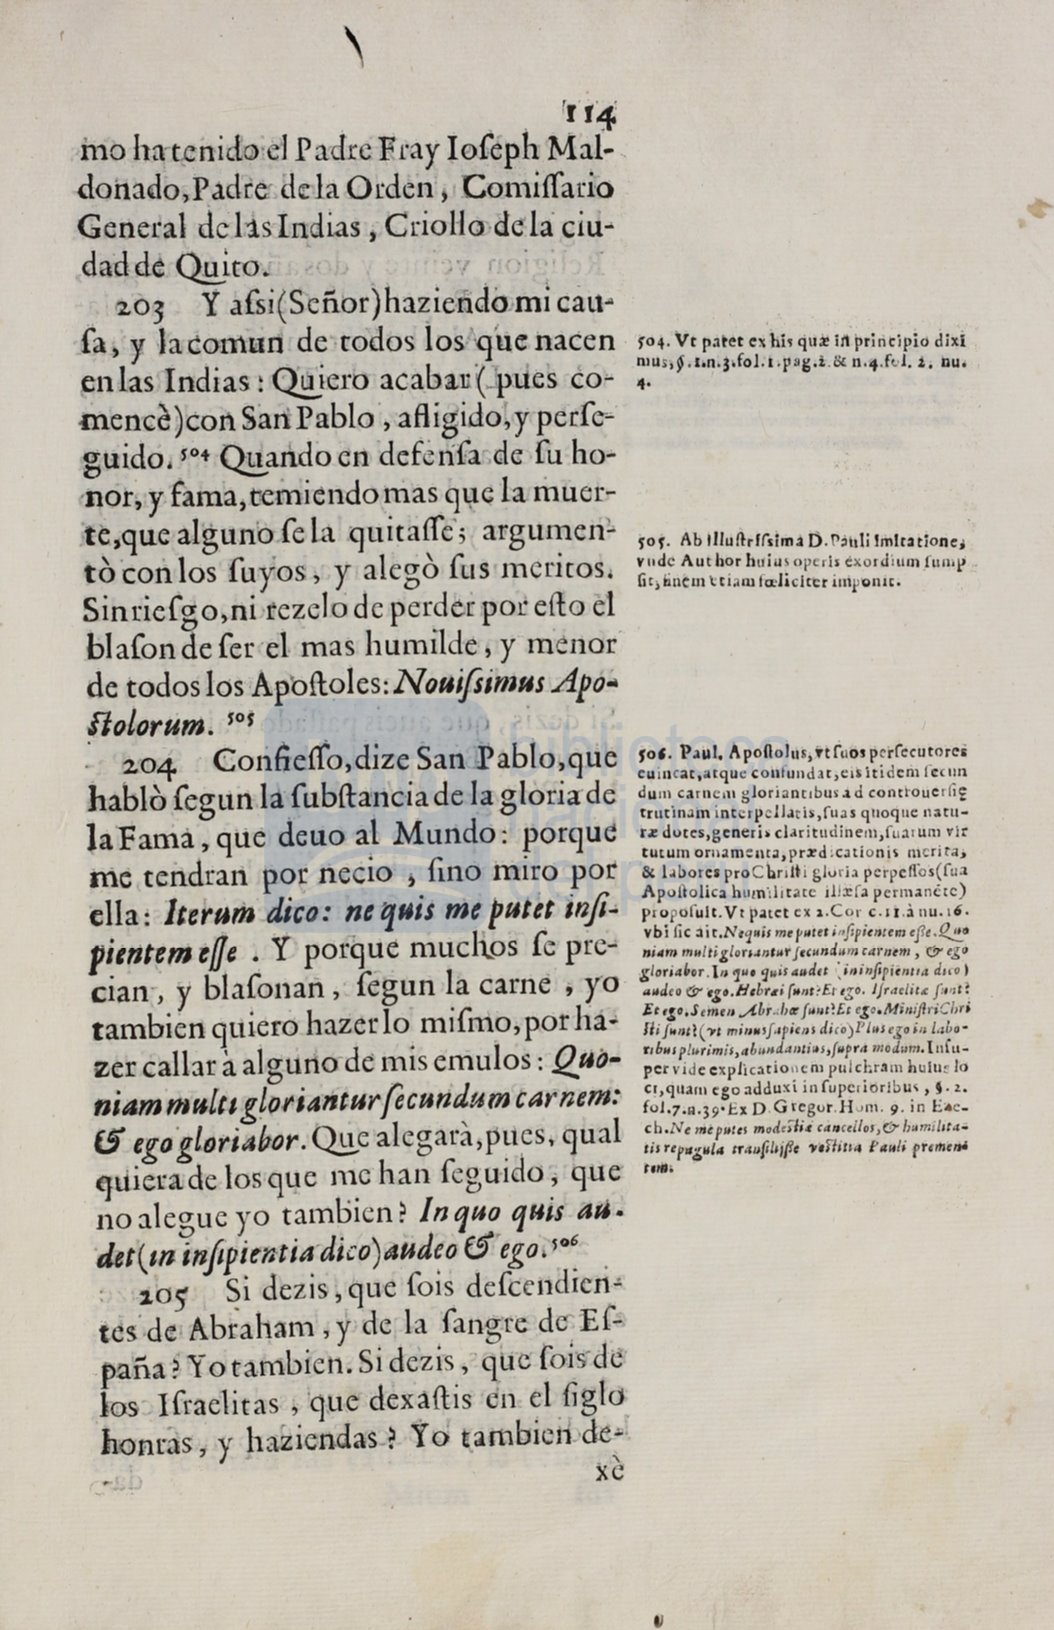 114
mo ha tenido el Padre Fray Ioſeph Mal-
donado, Padre de la Orden, Comiſſario
General de las Indias, Criollo de la ciu-
dad de Quito.
203 Y aſsi (Señor) haziendo mi cau-
ſa, y la comun de todos los que nacen
en las Indias: Quiero acabar (pues co-
mencè) con San Pablo, afligido, y perſe-
guido. 504 Quando en defenſa de ſu ho-
nor, y fama, temiendo mas que la muer-
te, que alguno ſe la quitaſſe; argumen-
tò con los ſuyos, y alegò ſus meritos.
Sin rieſgo, ni rezelo de perder por eſto el
blaſon de ſer el mas humilde, y menor
de todos los Apoſtoles: Nouiſsimus Apo-
ſtolorum. 505
204 Confieſſo, dize San Pablo, que
hablò ſegun la ſubſtancia de la gloria de
la Fama, que deuo al Mundo: porque
me tendran por necio, ſino miro por
ella: Iterum dico: ne quis me putet inſi-
pientem eſſe. Y porque muchos ſe pre-
cian, y blaſonan, ſegun la carne, yo
tambien quiero hazer lo miſmo, por ha-
zer callar à alguno de mis emulos: Quo-
niam multi gloriantur ſecundum carnem:
& ego gloriabor. Que alegarà, pues, qual
quiera de los que me han ſeguido, que
no alegue yo tambien? In quo quis au-
det (in inſipientia dico) audeo & ego. 506
205 Si dezis, que ſois deſcendien-
tes de Abraham, y de la ſangre de Eſ-
paña? Yo tambien. Si dezis, que ſois de
los Iſraelitas, que dexaſtis en el ſiglo
honras, y haziendas? Yo tambien de-
xè
504. Vt patet ex his quæ in principio dixi
mus, §. 1. n. 3. fol. 1. pag. 2. & n. 4. fol. 2. nu.
4.
505. Ab illuſtriſsima D. Pauli imitatione,
vnde Author huius operis exordium ſump
ſit, finem etiam fœliciter imponit.
506. Paul. Apoſtolus, vt ſuos perſecutores
euincat, atque confundat, eis itidem ſecun
dum carnem gloriantibus ad controuerſię
trutinam interpellatis, ſuas quoque natu-
ræ dotes, generis claritudinem, ſuarum vir
tutum ornamenta, prædicationis merita,
& labores pro Chriſti gloria perpeſſos (ſua
Apoſtolica humilitate illæſa permanẽte)
propoſuit. Vt patet ex 2. Cor c. 11. à nu. 16.
vbi ſic ait. Ne quis me putet inſipientem eſſe. Quo
niam multi gloriantur ſecundum carnem, & ego
gloriabor. In quo quis audet (in inſipientia dico)
audeo & ego. Hebræi ſunt? Et ego. Iſraelitæ ſunt?
Et ego. Semen Abrahæ ſunt? Et ego. Miniſtri Chri
ſti ſunt? (vt minus ſapiens dico) Plus ego in labo-
ribus plurimis, abundantius, ſupra modum. Inſu-
per vide explicationem pulchram huius lo
ci, quam ego adduxi in ſuperioribus, §. 2.
fol. 7. n. 39. Ex D. Gregor. Hom. 9. in Eze-
ch. Ne me putes modeſtiæ cancellos, & humilita-
tis repagula tranſilijſſe veſtigia Pauli premen-
tem.